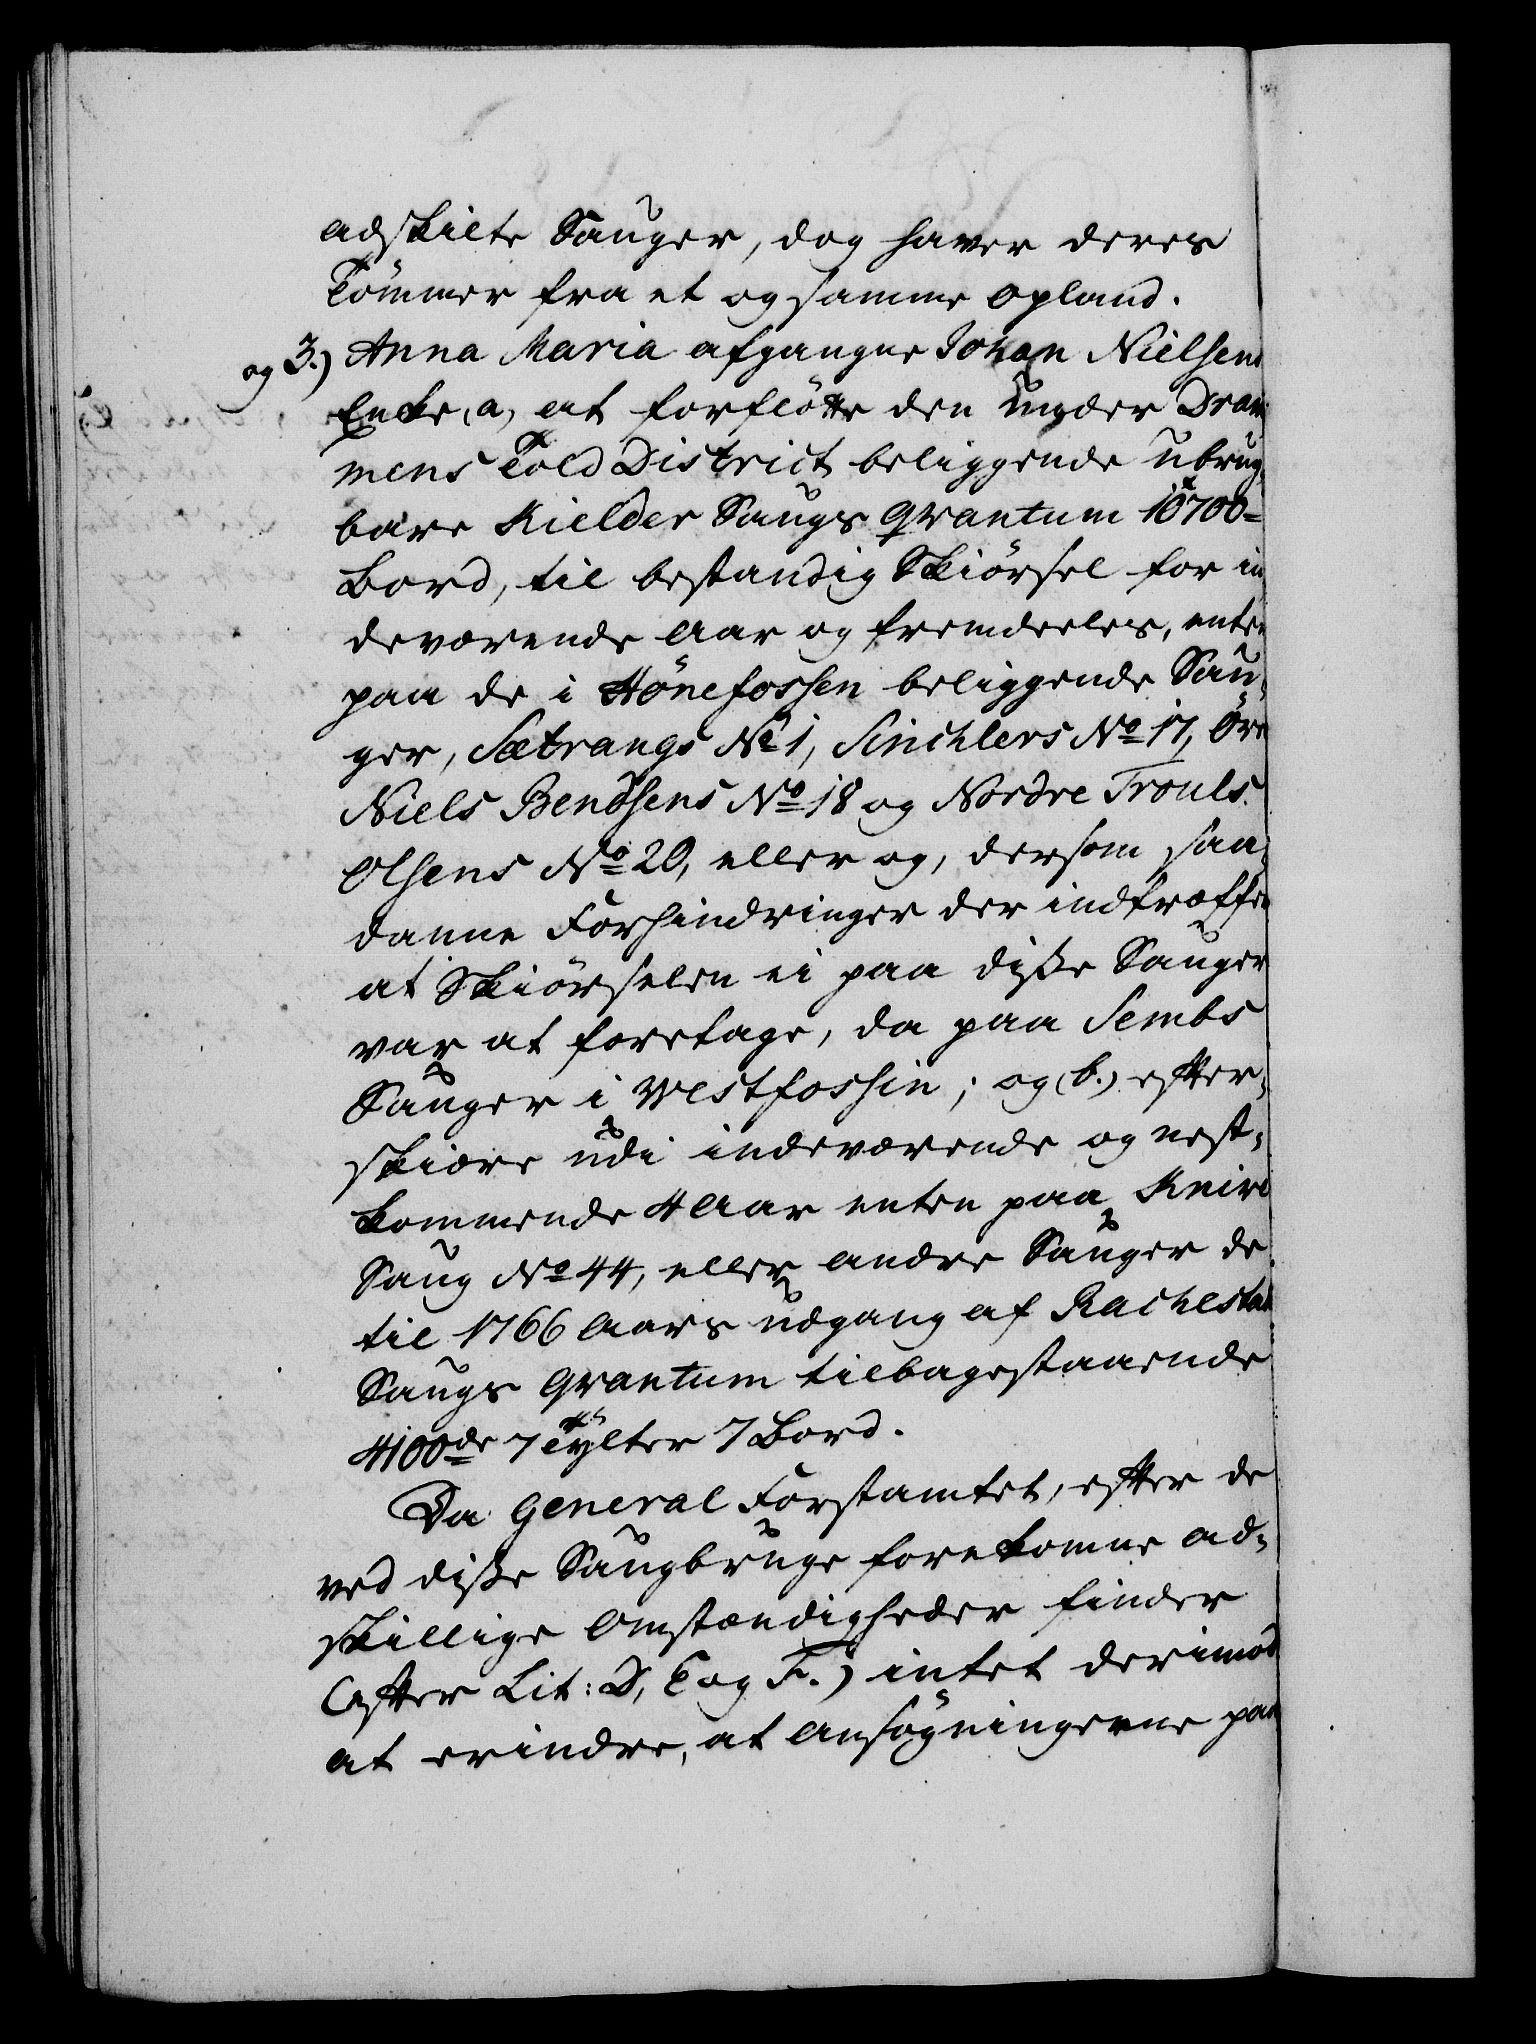 adskilte Sauger, dog haver deres
Tömmer fra et og samme Opland.
og 3.) Anna Maria afgangne Johan Nielsens
Enke, a, at forflötte den under Dram-
mens Told District beliggende ubrug-
bare Kielder Saugs Qvantum 10700-
Bord, til bestandig Skiörsel for in-
deværende Aar og fremdeeles, enten
paa de i Hönefossen beliggende Sau-
ger, Sætrangs No 1, Sinchlers No 17, Övre
Niels Bendsens No 18 og Nordre Trouls
Olsens No 20, eller og, dersom saa-
danne Forhindringer der indtræffer
at Skiörselen ei paa disse Sauger
var at foretage, da paa Sembs
Sauger i Vestfossen; og (b.) efter-
skiære udi indeværende og nest-
kommende 4 Aar enten paa Knive
Saug No 44, eller andre Sauger de
til 1766 Aars udgang af Rachestad
Saugs Qvantum tilbagestaaende
4100de 7 Tylter 7 Bord.
Da General Forstamtet, efter de
ved disse Saugbruge forekomne ad-
skillige Omstændigheder finder
(efter Lit: D, E og F.) intet derimod
at erindre, at Ansögningerne paa